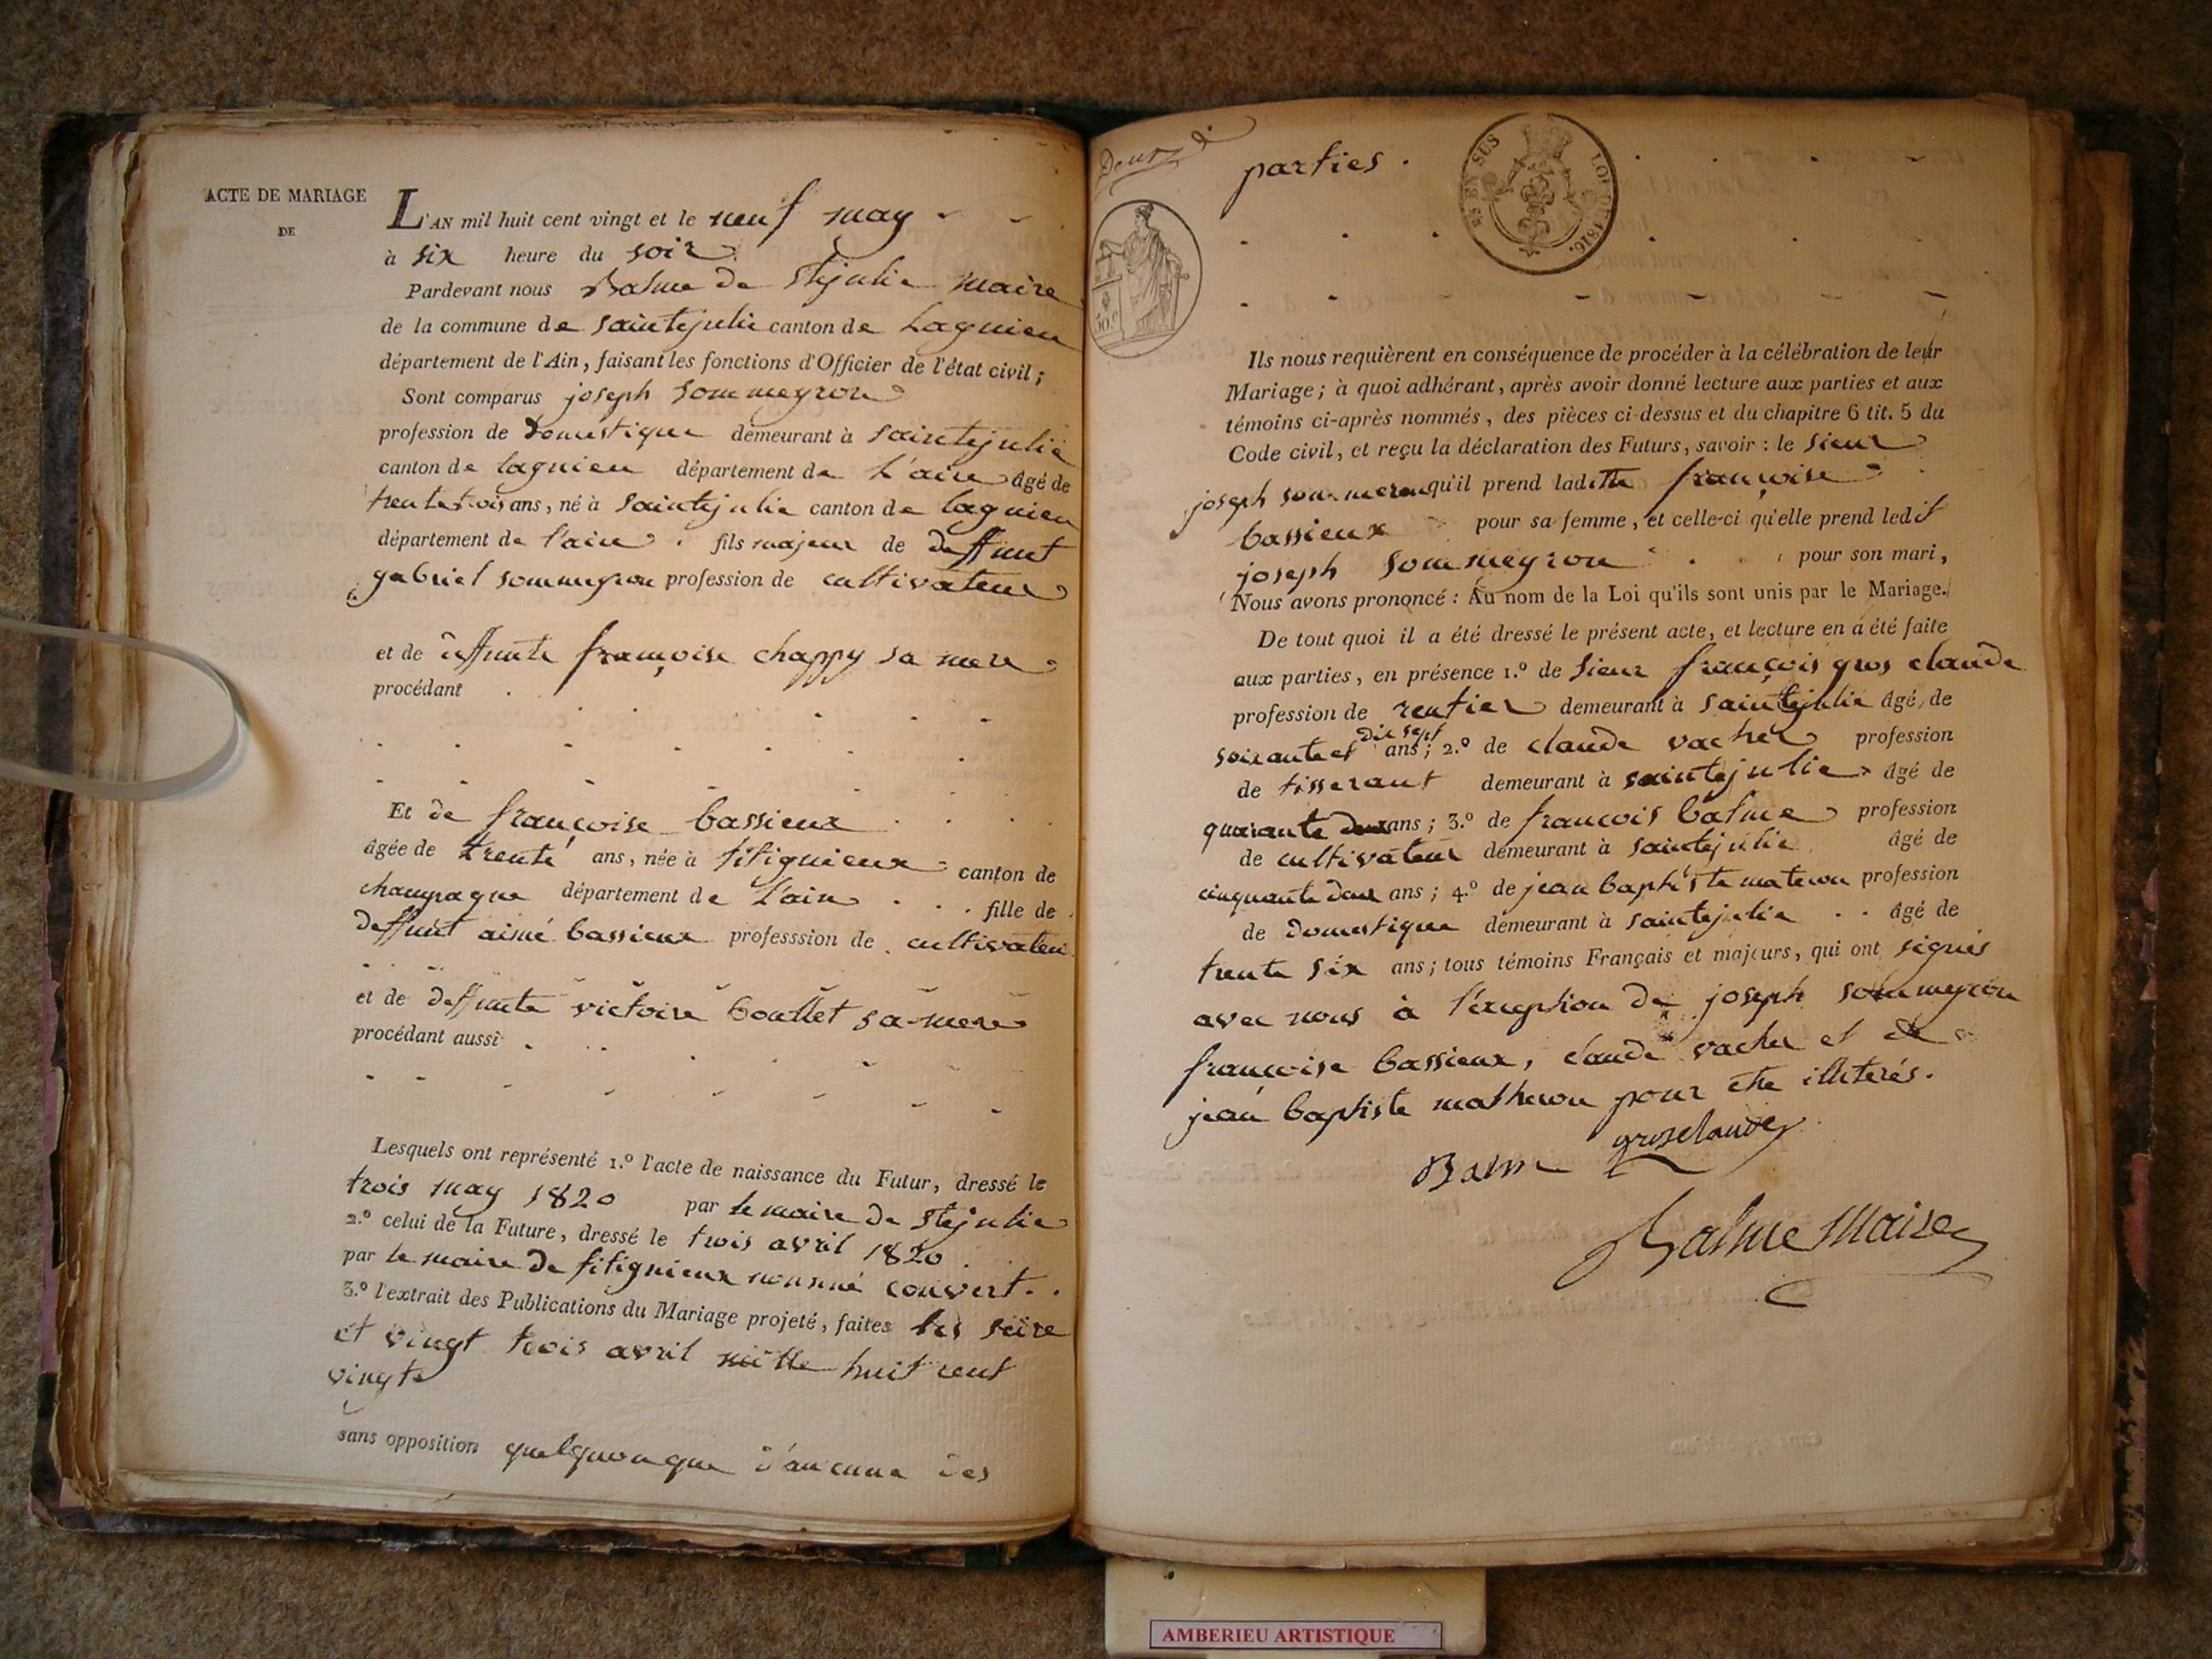 ACTE DE MARIAGE
DE
L'AN mil huit cent vingt et le neuf may
à six heure du soir
Pardevant nous Balme de Stejulie maire
de la commune de saintejulie canton de Lagnieu
département de l'Ain, faisant les fonctions d'Officier de l'état civil;
Sont comparus joseph sommeyron
profession de Domestique demeurant à saintejulie
canton de lagnieu département de L'ain âgé de
trente trois ans, né à saintejulie canton de lagnieu
département de l'ain . fils majeur de deffunt
gabriel sommeyron profession de cultivateur
et de deffunte françoise chappy sa mere
procédant
Et de françoise bassieux
âgée de trente ans, née à fitignieux canton de
champagne département de L'ain fille de
deffunt aimé bassieux professsion de cultivateur
et de deffunte victoire boullet sa mere
procédant aussi
Lesquels ont représenté 1.º l'acte de naissance du Futur, dressé le
trois may 1820 par le maire de Stejulie
2.º celui de la Future, dressé le trois avril 1820
par le maire de fitignieux nommé convert.
3.º l'extrait des Publications du Mariage projeté, faites les seize
et vingt trois avril mille huit cent
vingt
sans opposition quelquonque d'aucune des
parties .
EN SUS LOI DE 1816.
50.c
Ils nous requièrent en conséquence de procéder à la célébration de leur
Mariage; à quoi adhérant, après avoir donné lecture aux parties et aux
témoins ci-après nommés, des pièces ci-dessus et du chapitre 6 tit. 5 du
Code civil, et reçu la déclaration des Futurs, savoir : le sieur
joseph sommeron qu'il prend ladette françoise
bassieux pour sa femme, et celle-ci qu'elle prend ledit
joseph sommeyron pour son mari,
Nous avons prononcé : Au nom de la Loi qu'ils sont unis par le Mariage.
De tout quoi il a été dressé le présent acte, et lecture en a été faite
aux parties, en présence 1.º de sieur françois gros claude
profession de rentier demeurant à saintejulie âgé de
dix sept
soixante et ans; 2.º de claude vacher profession
de tisserant demeurant à saintejulie âgé de
quarante deux ans; 3.º de francois balme profession
de cultivateur demeurant à saintejulie âgé de
cinquante deux ans; 4.º de jean baptiste materon profession
de domestique demeurant à saintejulie . . âgé de
trente six ans; tous témoins Français et majeurs, qui ont signés
avec nous à l'éxception de joseph sommeyron
françoise bassieux, claude vacher et de
jean baptiste matheron pour etre illiterés.
Balme groselaude
Balme Maire
AMBERIEU ARTISTIQUE